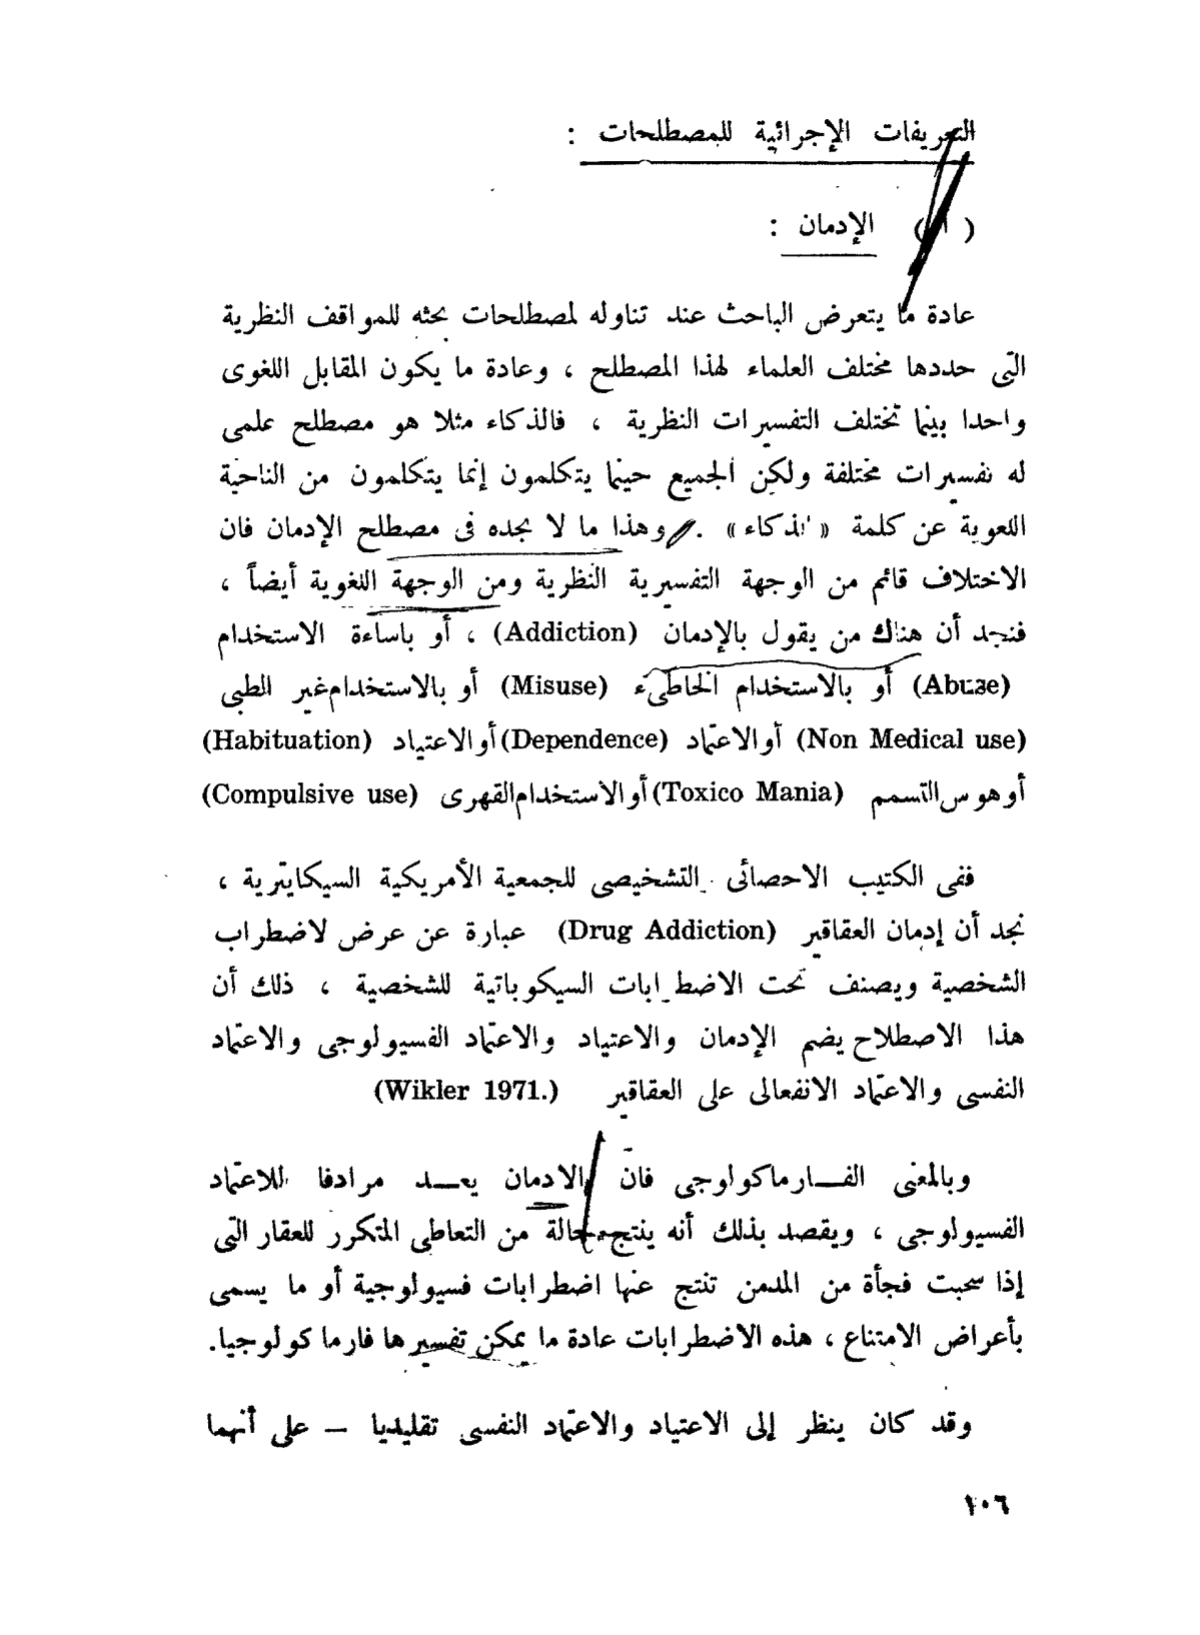 التعريفات الإجرائية للمصطلحات :
( أ ) الإدمان :
عادة ما يتعرض الباحث عند تناوله لمصطلحات بحثه للمواقف النظرية
التى حددها مختلف العلماء لهذا المصطلح ، وعادة ما يكون المقابل اللغوى
واحدا بينما تختلف التفسيرات النظرية ، فالذكاء مثلا هو مصطلح علمى
له تفسيرات مختلفة ولكن الجميع حينما يتكلمون إنما يتكلمون من الناحية
اللغوية عن كلمة « الذكاء » . وهذا ما لا نجده فى مصطلح الإدمان فان
الاختلاف قائم من الوجهة التفسيرية النظرية ومن الوجهة اللغوية أيضاً ،
فنجد أن هناك من يقول بالإدمان (Addiction) ، أو باساءة الاستخدام
(Abuse) أو بالاستخدام الخاطىء (Misuse) أو بالاستخدام غير الطبى
(Non Medical use) أو الاعتماد (Dependence) أو الاعتياد (Habituation)
أو هوس التسمم (Toxico Mania) أو الاستخدام القهرى (Compulsive use)
ففى الكتيب الاحصائى التشخيصى للجمعية الأمريكية السيكايترية ،
نجد أن إدمان العقاقير (Drug Addiction) عبارة عن عرض لاضطراب
الشخصية ويصنف تحت الاضطرابات السيكوباتية للشخصية ، ذلك أن
هذا الاصطلاح يضم الإدمان والاعتياد والاعتماد الفسيولوجى والاعتماد
النفسى والاعتماد الانفعالى على العقاقير (Wikler 1971.)
وبالمعنى الفـارماكولوجى فان الادمان يعـد مرادفا للاعتماد
الفسيولوجى ، ويقصد بذلك أنه ينتج حالة من التعاطى المتكرر للعقار التى
إذا سحبت فجأة من المدمن تنتج عنها اضطرابات فسيولوجية أو ما يسمى
بأعراض الامتناع ، هذه الاضطرابات عادة ما يمكن تفسيرها فارماكولوجيا.
وقد كان ينظر إلى الاعتياد والاعتماد النفسى تقليديا — على أنهما
١٠٦